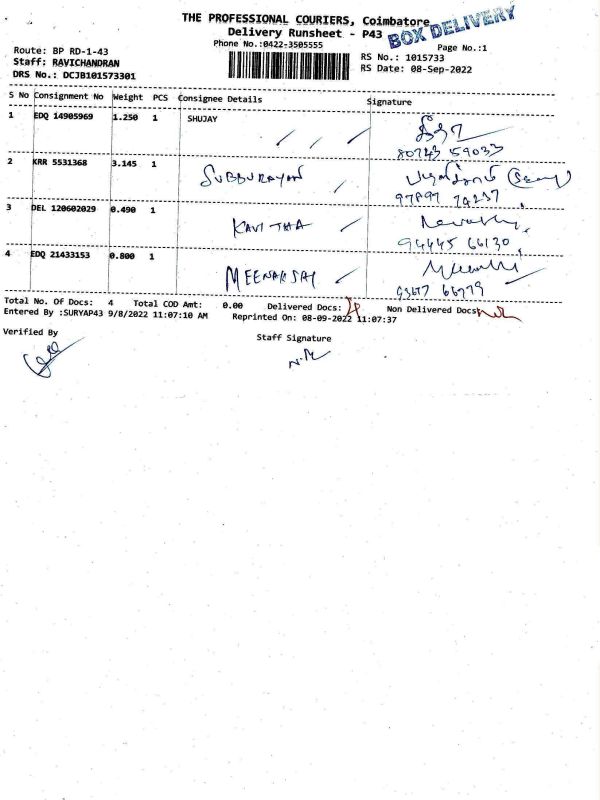 THE PROFESSIONAL COURIERS, Coimbatore
Delivery Runsheet - P43
BOX DELIVERY
Phone No.:0422-3505555
Page No.:1
Route: BP RD-1-43
RS No.: 1015733
Staff: RAVICHANDRAN
RS Date: 08-Sep-2022
DRS No.: DCJB101573301
S No Consignment No Weight PCS Consignee Details Signature
1 EDQ 14905969 1.250 1 SHUJAY
80743 59033
2 KRR 5531368 3.145 1 SUBBURAYAN
3 DEL 120602029 0.490 1 KAVITHA
94445 66130
4 EDQ 21433153 0.800 1 MEENAKSAY
Total No. Of Docs: 4 Total COD Amt: 0.00 Delivered Docs: 4 Non Delivered Docs
Entered By :SURYAP43 9/8/2022 11:07:10 AM Reprinted On: 08-09-2022 11:07:37
Verified By
Staff Signature